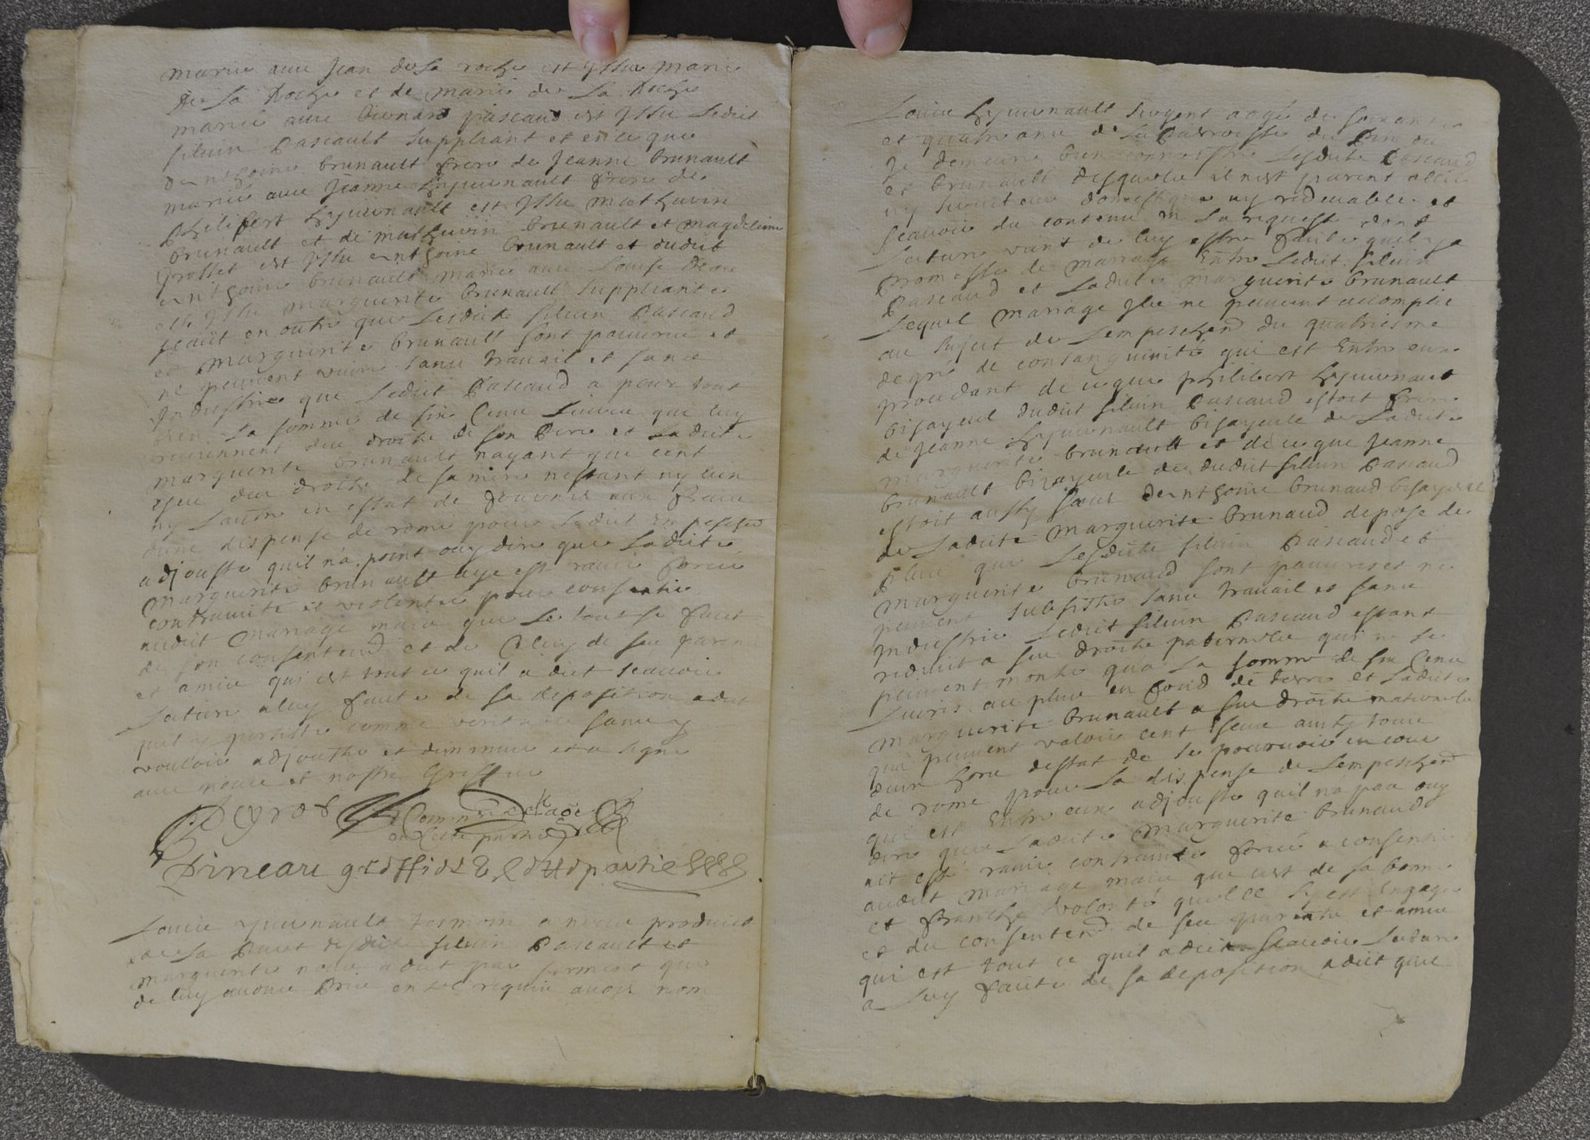 mariée avec Jean de la roche est yssue marie
de la Roche et de marie de la Roche
mariée avec Lienard pascaud est yssu ledict
silvin Pascault suppliant et en ce que
anthoine brunault frere de Jeanne brunault
marié avec Jeanne Lyvernault frere de
philipert Lyvernault est yssu mathurin
brunault et de mathurin brunault et magdelaine
grosset est yssu anthoine brunault et dudict
anthoine brunault marié avec Louise
est yssue marguerite brunault suppliante
scait en outre que lesdits silvin Pascaud
et marguerite brunault sont pauvres et
ne peuvent vivre sans travail et sans
Industrie que ledict Pascaud a pour tout
bien la somme de six cens livres que luy
reviennent des droits de son pere et ladicte
marguerite brunault nayant que cent
escus des droits de sa mere nestant ny lun
ny lautre en estat de fournir aux fraix
dune dispense de rome pour ledict Empeschement
adjouste quil na point ouy dire que ladicte
marguerite brunault aye esté ravie forcée
contrainte et violentée pour consentir
audict mariage mais que le tout se faict
de son consentement et de celuy de ses parens
et amis qui est tout ce quil a dict scavoir
Lecture a luy faicte de sa deposition a dict
quil y persiste comme veritable sans y
vouloir adjouster et diminuer et a signé
avec nous et nostre greffier
Peyrot Commissaire
en cette partie
Pineau greffier en cette partie
Louis Lyvernault tesmoin a nous produict
de la part desdits silvin Pascault et
marguerite nous a dict par serment que
de luy avons pris en tel requis avoir nom
Louis Lyvernault sergent aagé de soixante
et quatre ans de la Parroisse de
Je demeure bien connoistre lesdits Pascaud
et brunault desquels il nest parent allié
ny serviteur domestique ny redevable et
scavoir du contenu en la requeste dont
lecture vient de luy estre faicte quil y a
promesse de mariage Entre ledict silvin
Pascaud et ladicte marguerite brunault
Lequel mariage Ils ne peuvent accomplir
au sujet de lempeschement du quatriesme
degré de consanguinité qui est Entre eux
procedant de ce que philibert Lyvernault
bisayeul dudict silvin Pascaud estoit frere
de Jeanne Lyvernault bisayeule de ladicte
marguerite brunault et de ce que Jeanne
brunault bisayeule dudict silvin Pascaud
estoit aussy sœur danthoine brunaud bisayeul
de ladicte marguerite brunaud depose de
plus que lesdits silvin Pascaud et
marguerite brunaud sont pauvres et ne
peuvent subsister sans travail et sans
Industrie ledict silvin Pascaud estant
reduict a ses droits paternels qui ne se
peuvent monter qua la somme de six cens
Livres au plus en fond de terre et ladicte
marguerite brunault a ses droits maternels
qui peuvent valoir cent escus aussy tous
deux hors destat de se pourvoir en cour
de rome pour la dispense de lempeschement
qui est Entre eux adjouste quil na pas ouy
dire que ladicte marguerite brunaud
ait esté ravie contrainte forcée a consentir
audict mariage mais que cest de sa bonne
et franche volonté quelle sy est engagée
et du consentement de ses parents et amis
qui est tout ce quil a dict scavoir Lecture
a luy faicte de sa deposition a dict que